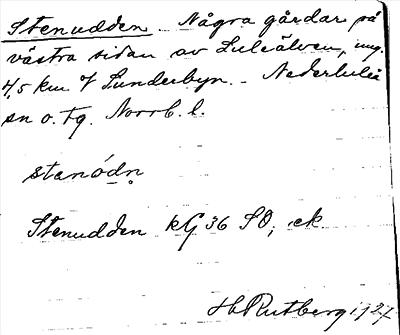 Stenudden Några gårdar på
västra sidan av Luleälven, ung.
4,5 km Sunderbyn. - Nederluleå
sn o. tg. Norrb. l.
stenódn
Stenudden kG 36 SO, ek.
H Rutberg 1927